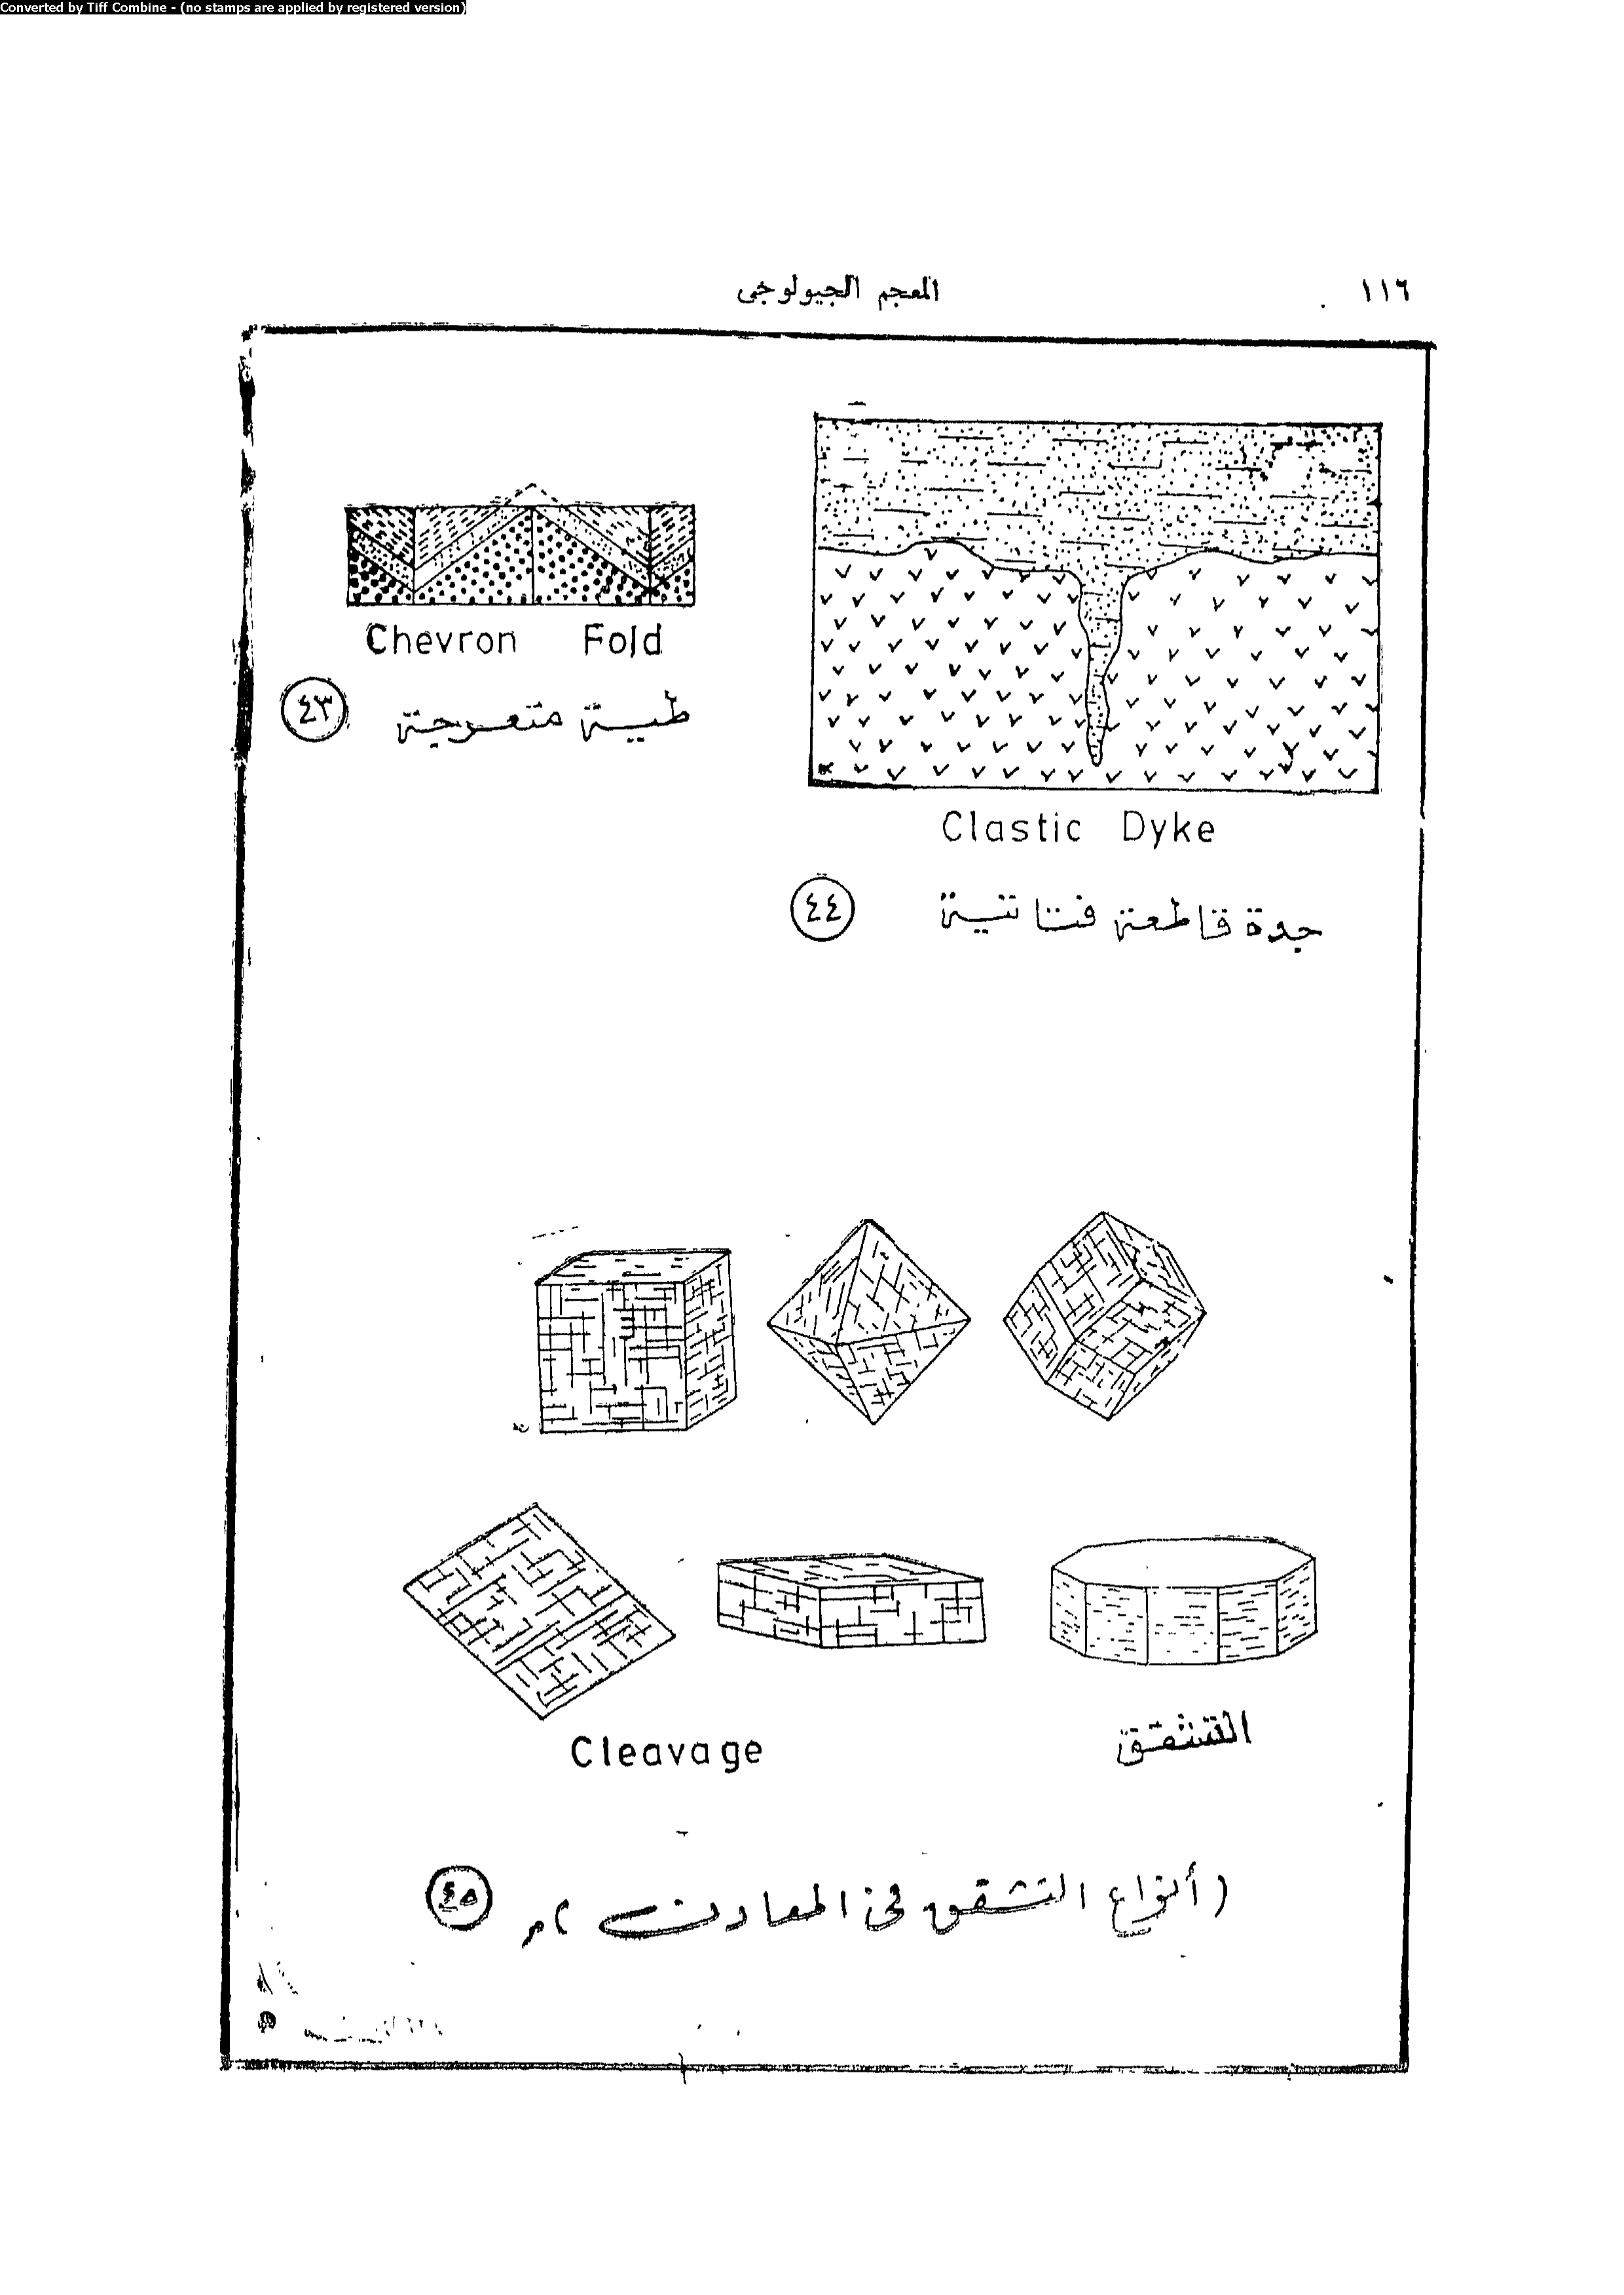 Converted by Tiff Combine - (no stamps are applied by registered version)
١١٦
المعجم الجيولوجى
Chevron Fold
طية متعرجة
٤٣
Clastic Dyke
جدة قاطعة فتاتية
٤٤
Cleavage
التشقق
(أنواع التشقق فى المعادن)
٤٥